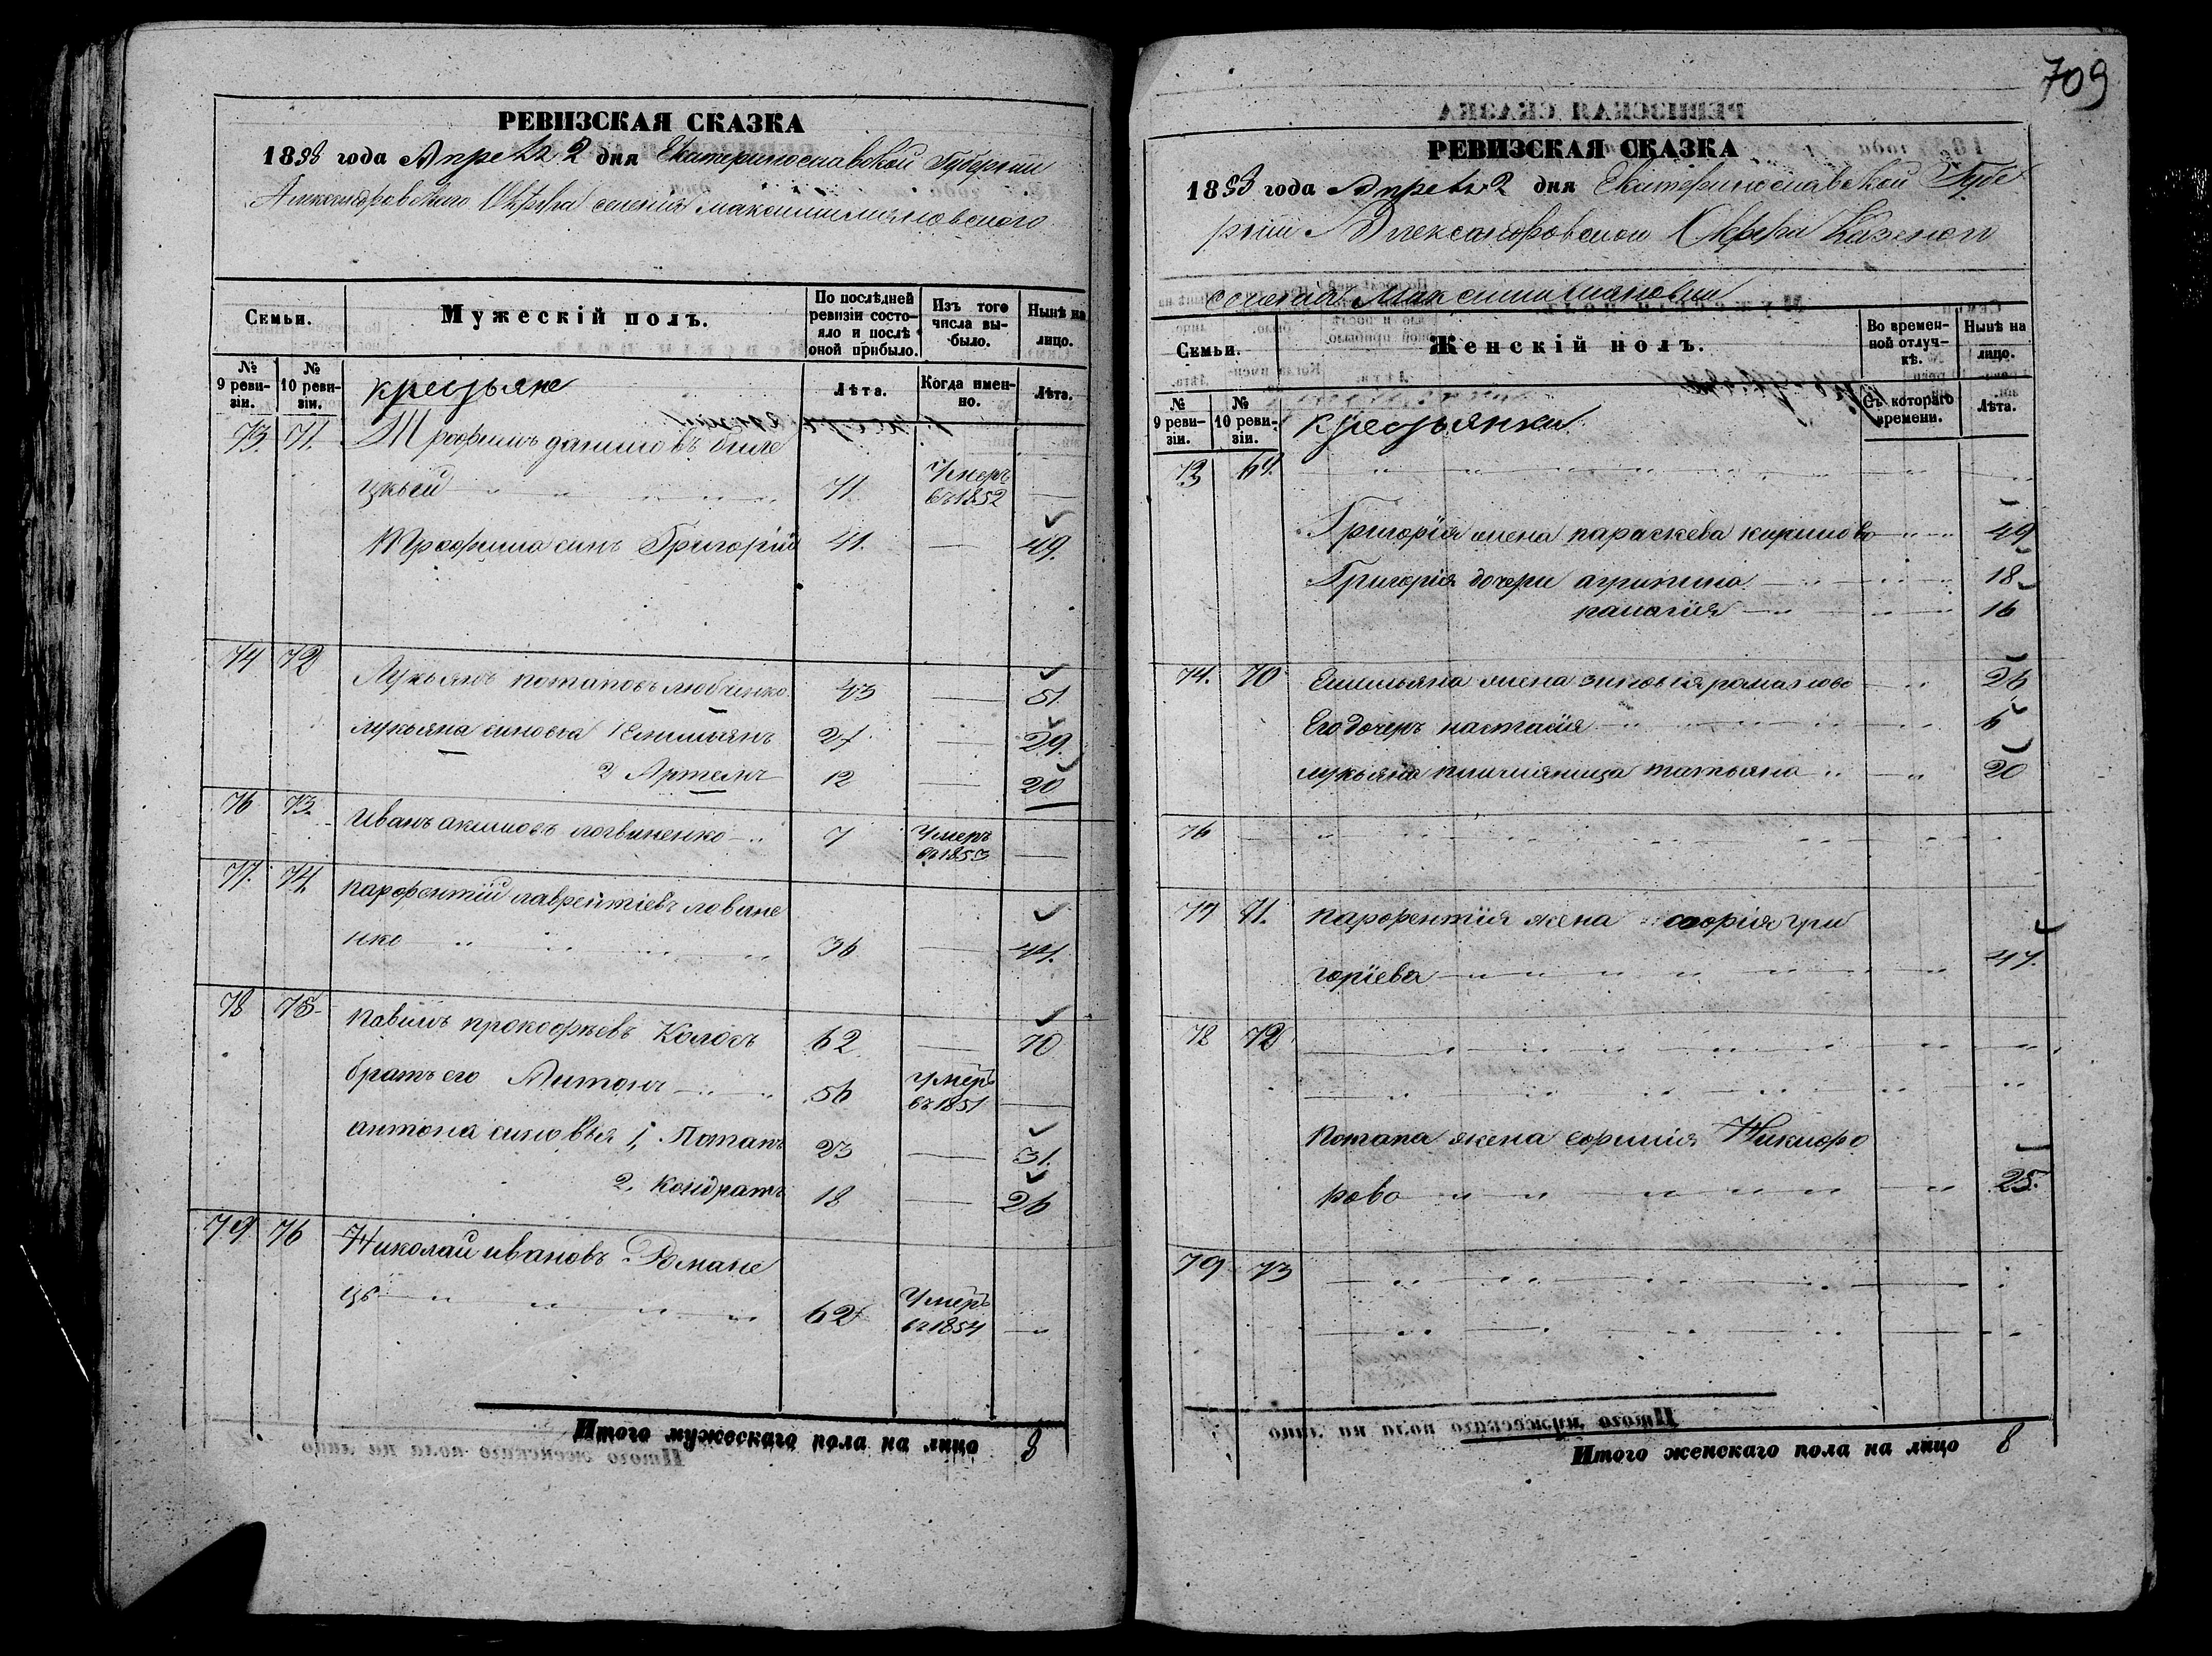 709
РЕВИЗСКАЯ СКАЗКА
1858 года Апреля 2 дня Екатеринославской Губернии
Александровского Округа селения Максимилияновского
Семьи.
Мужескій полъ.
По послѣдней ревизіи состояло и послѣ оной прибыло.
Изъ того числа выбыло.
Нынѣ на лицо.
№ 9 ревизіи.
№ 10 ревизіи.
крестьяне
Лѣта.
Когда именно.
Лѣта.
73. 71. Трофимъ даниловъ биле
цкый 71 Умеръ въ 1852 —
Трофима синъ Григорій 41. — 49.
74 72 Лукьянъ потаповъ любченко 43 — 51.
лукьяна синовья 1 Емильянъ 21 — 29.
2 Артемъ 12 — 20
76 73. Иванъ акимовъ логвиненко 7 Умеръ въ 1853 —
77. 74. парфентій лаврентіевъ ловяне
нко 36 — 44.
78 75 павилъ прокофьевъ Колосъ 62 — 70
братъ его Антонъ 56 Умеръ въ 1851 —
антона синовья 1, Потапъ 23 — 31.
2, кондратъ 18 — 26
79 76 Николай ивановъ Романе
цъ 62 Умеръ въ 1854
Итого мужескаго пола на лицо 8
РЕВИЗСКАЯ СКАЗКА
1858 года Апреля 2 дня Екатеринославской Губе
рнии Александровской Округи Казеной
Максимилияновки
Семьи.
Женскій полъ.
Во временной отлучкѣ.
Нынѣ на лицо.
№ 9 ревизіи.
№ 10 ревизіи.
крестьянки
Съ котораго времени.
Лѣта.
73 69.
Григорія жена паражева кирилова 49
Григорія дочери агрипина 18
палагия 16
74. 70 Емильяна жена зиновія романова 26
Его дочеръ настасія 6
лукьяна племяница татьяна 20
76
77 71. парфентія жена софія гри
горіева 47.
78 72
Потапа жена ефимия Никифо
рова 25.
79 73
Итого женскаго пола на лицо 8